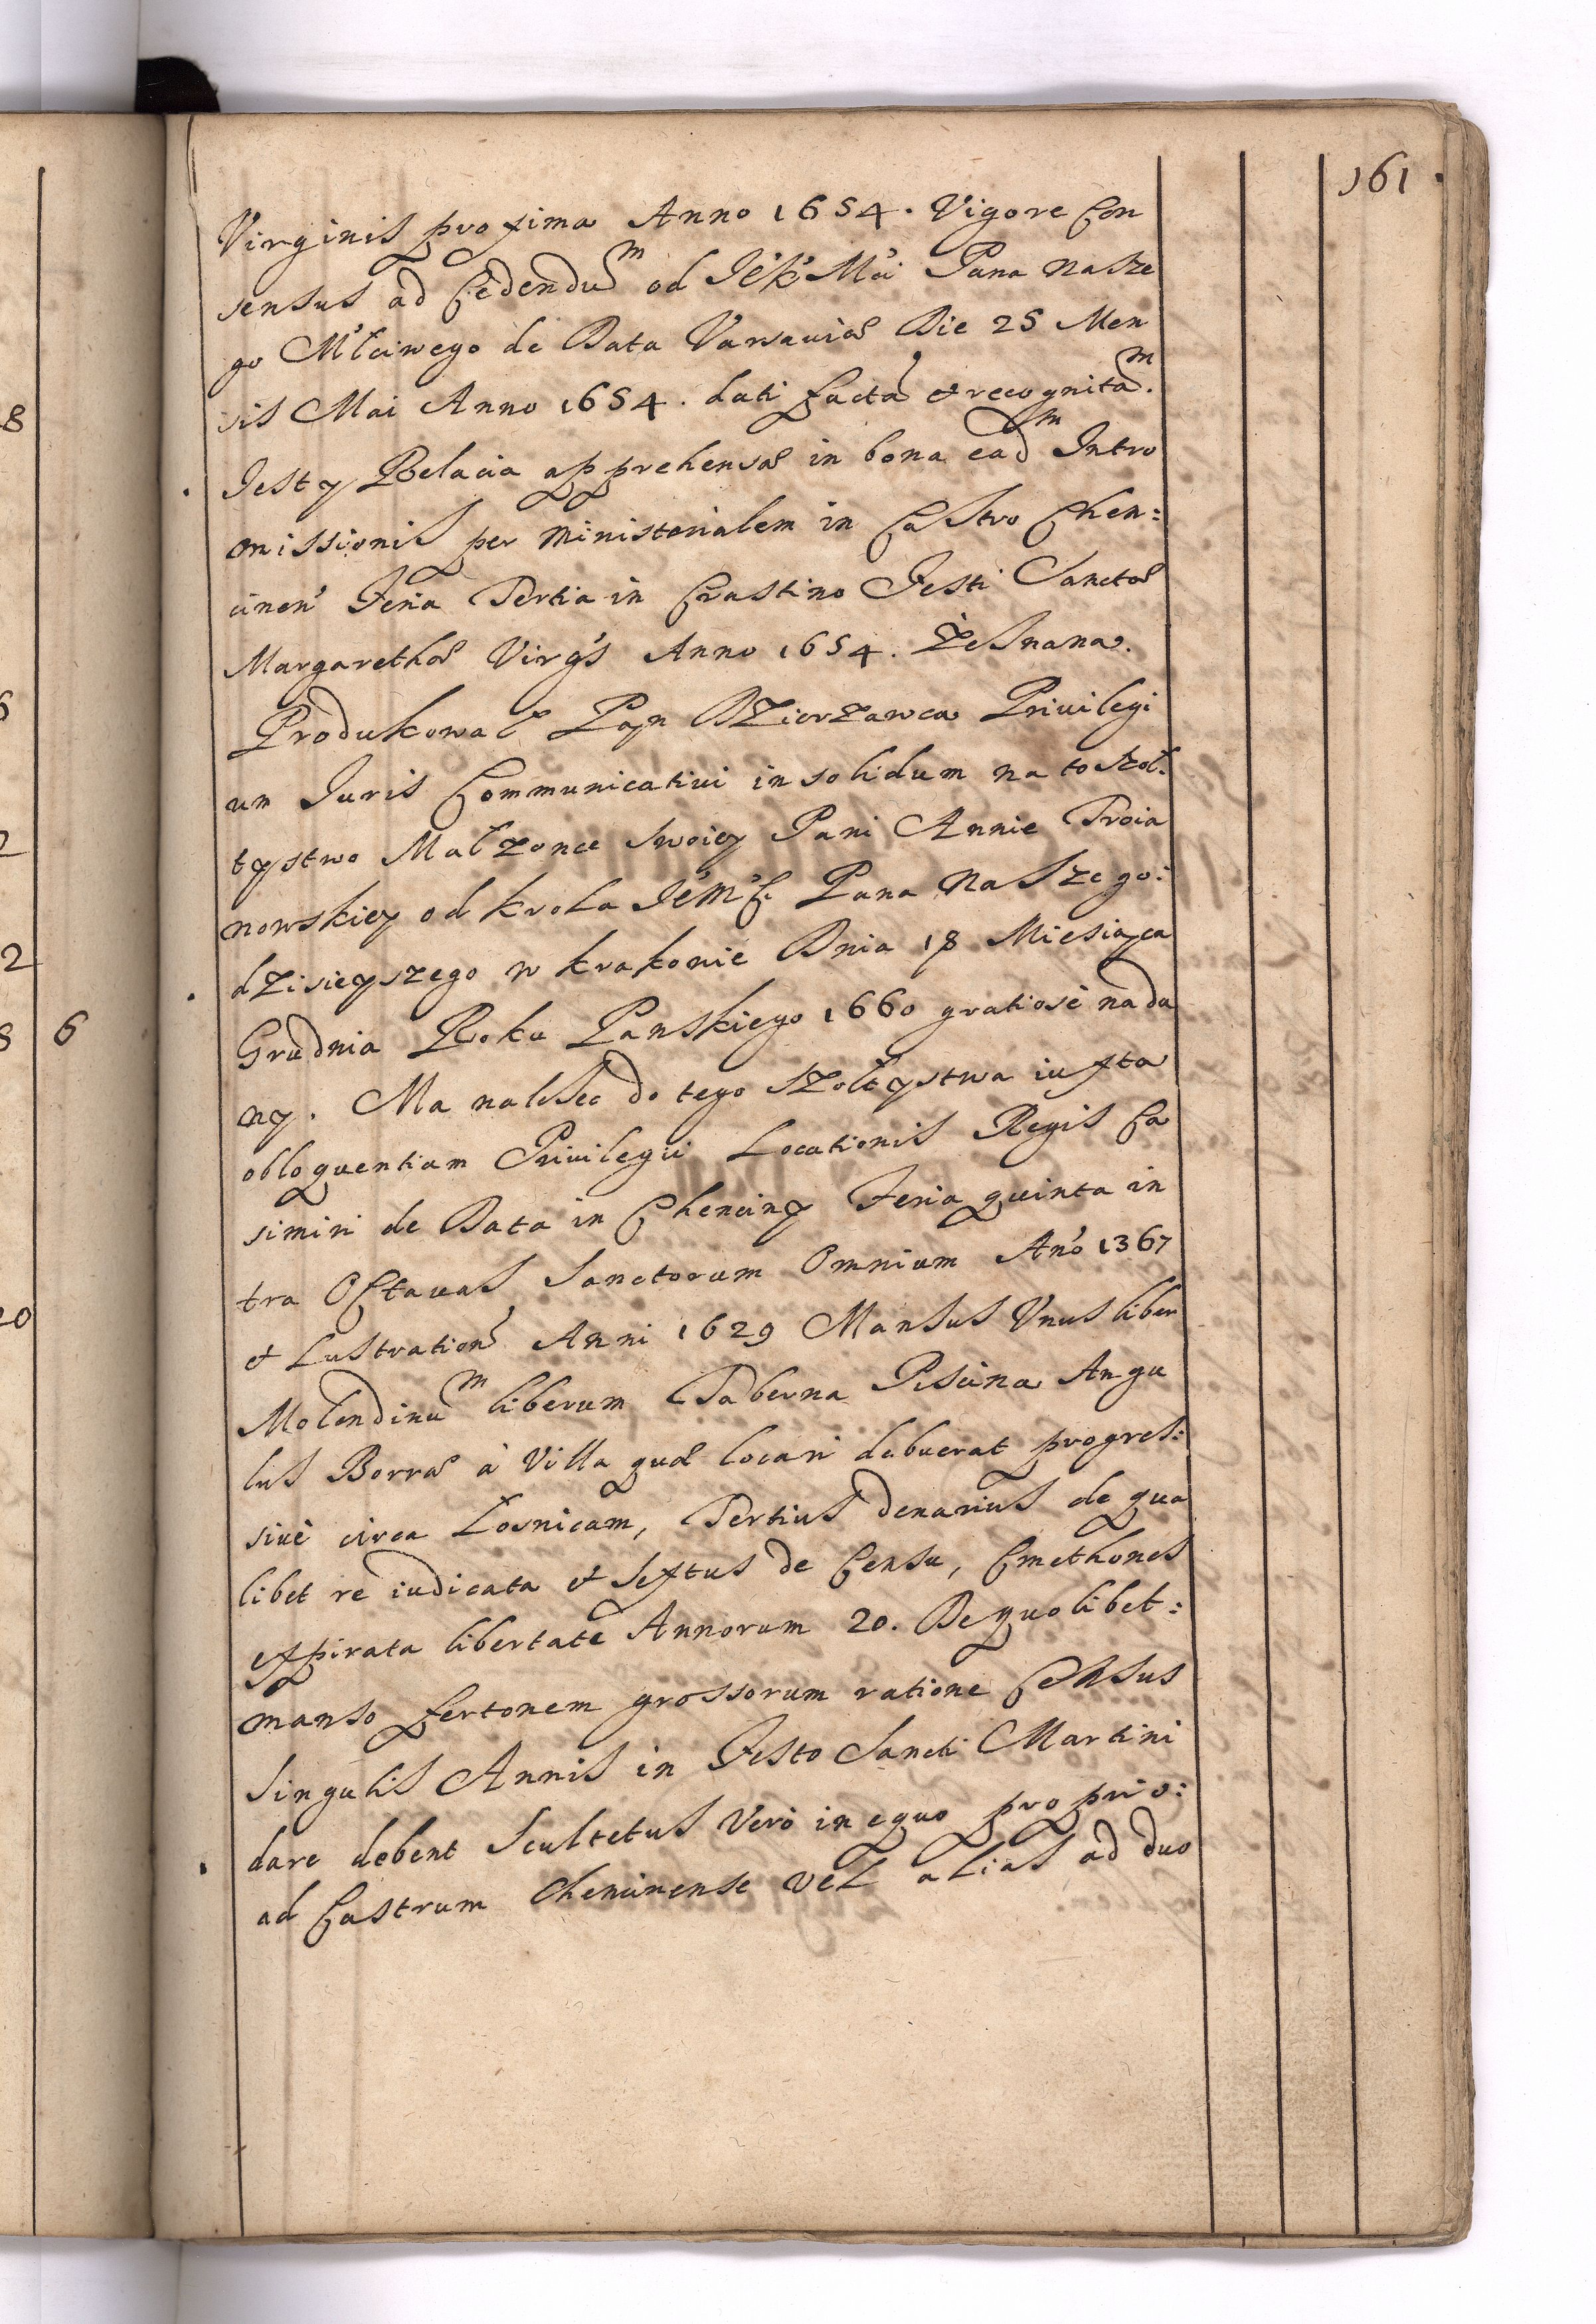 161
Virginis proxima Anno 1654. Vigore Con
sensus ad Cedendum od JeK Mci Pana Nasze
go Młciwego de Data Varsaviae Die 25 Men
sis Mai Anno 1654. dati facta et recognita.
Jest y Relacia apprehensae in bona eadm Intro
missionis per Ministerialem in Castro Chen:
cinen Feria Tertia in Crastino Festi Sanctae
Margarethae Virgs Anno 1654. Zeznana.
Produkował Pan Dzierzawca Privilegi
um Juris Communicativi in solidum na to szoł:
tystwo Małzonce swoiey Pani Annie Troia
nowskiey od Krola JeMC Pana Naszego:
dzisieyszego w Krakowie Dnia 18 Miesiąca
Grudnia Roku Panskiego 1660 gratiose nada
ny. Ma nalezec do tego szołtystwa iuxta
obloquentiam Privilegii Locationis Regis Ca
simiri de Data in Chenciny Feria quinta in
tra Octavas Sanctorum Omnium Ano 1367
et Lustration Anni 1629 Mansus Unus liber
Molendinum liberum Taberna Piscina Angu
lus Borrae à Villa quae locari debuerat progres:
sive circa Losnicam, Tertius denarius de qua
libet re iudicata et Sextus de Censu, Cmethones
expirata libertate Annorum 20. De quolibet:
manso fertonem grossorum ratione Census
Singulis Annis in Festo Sancti Martini
dare debent Scultetus Verò in equo proprio:
ad Castrum Chencinense Vel alias ad duo
8
2
2
8 6
20